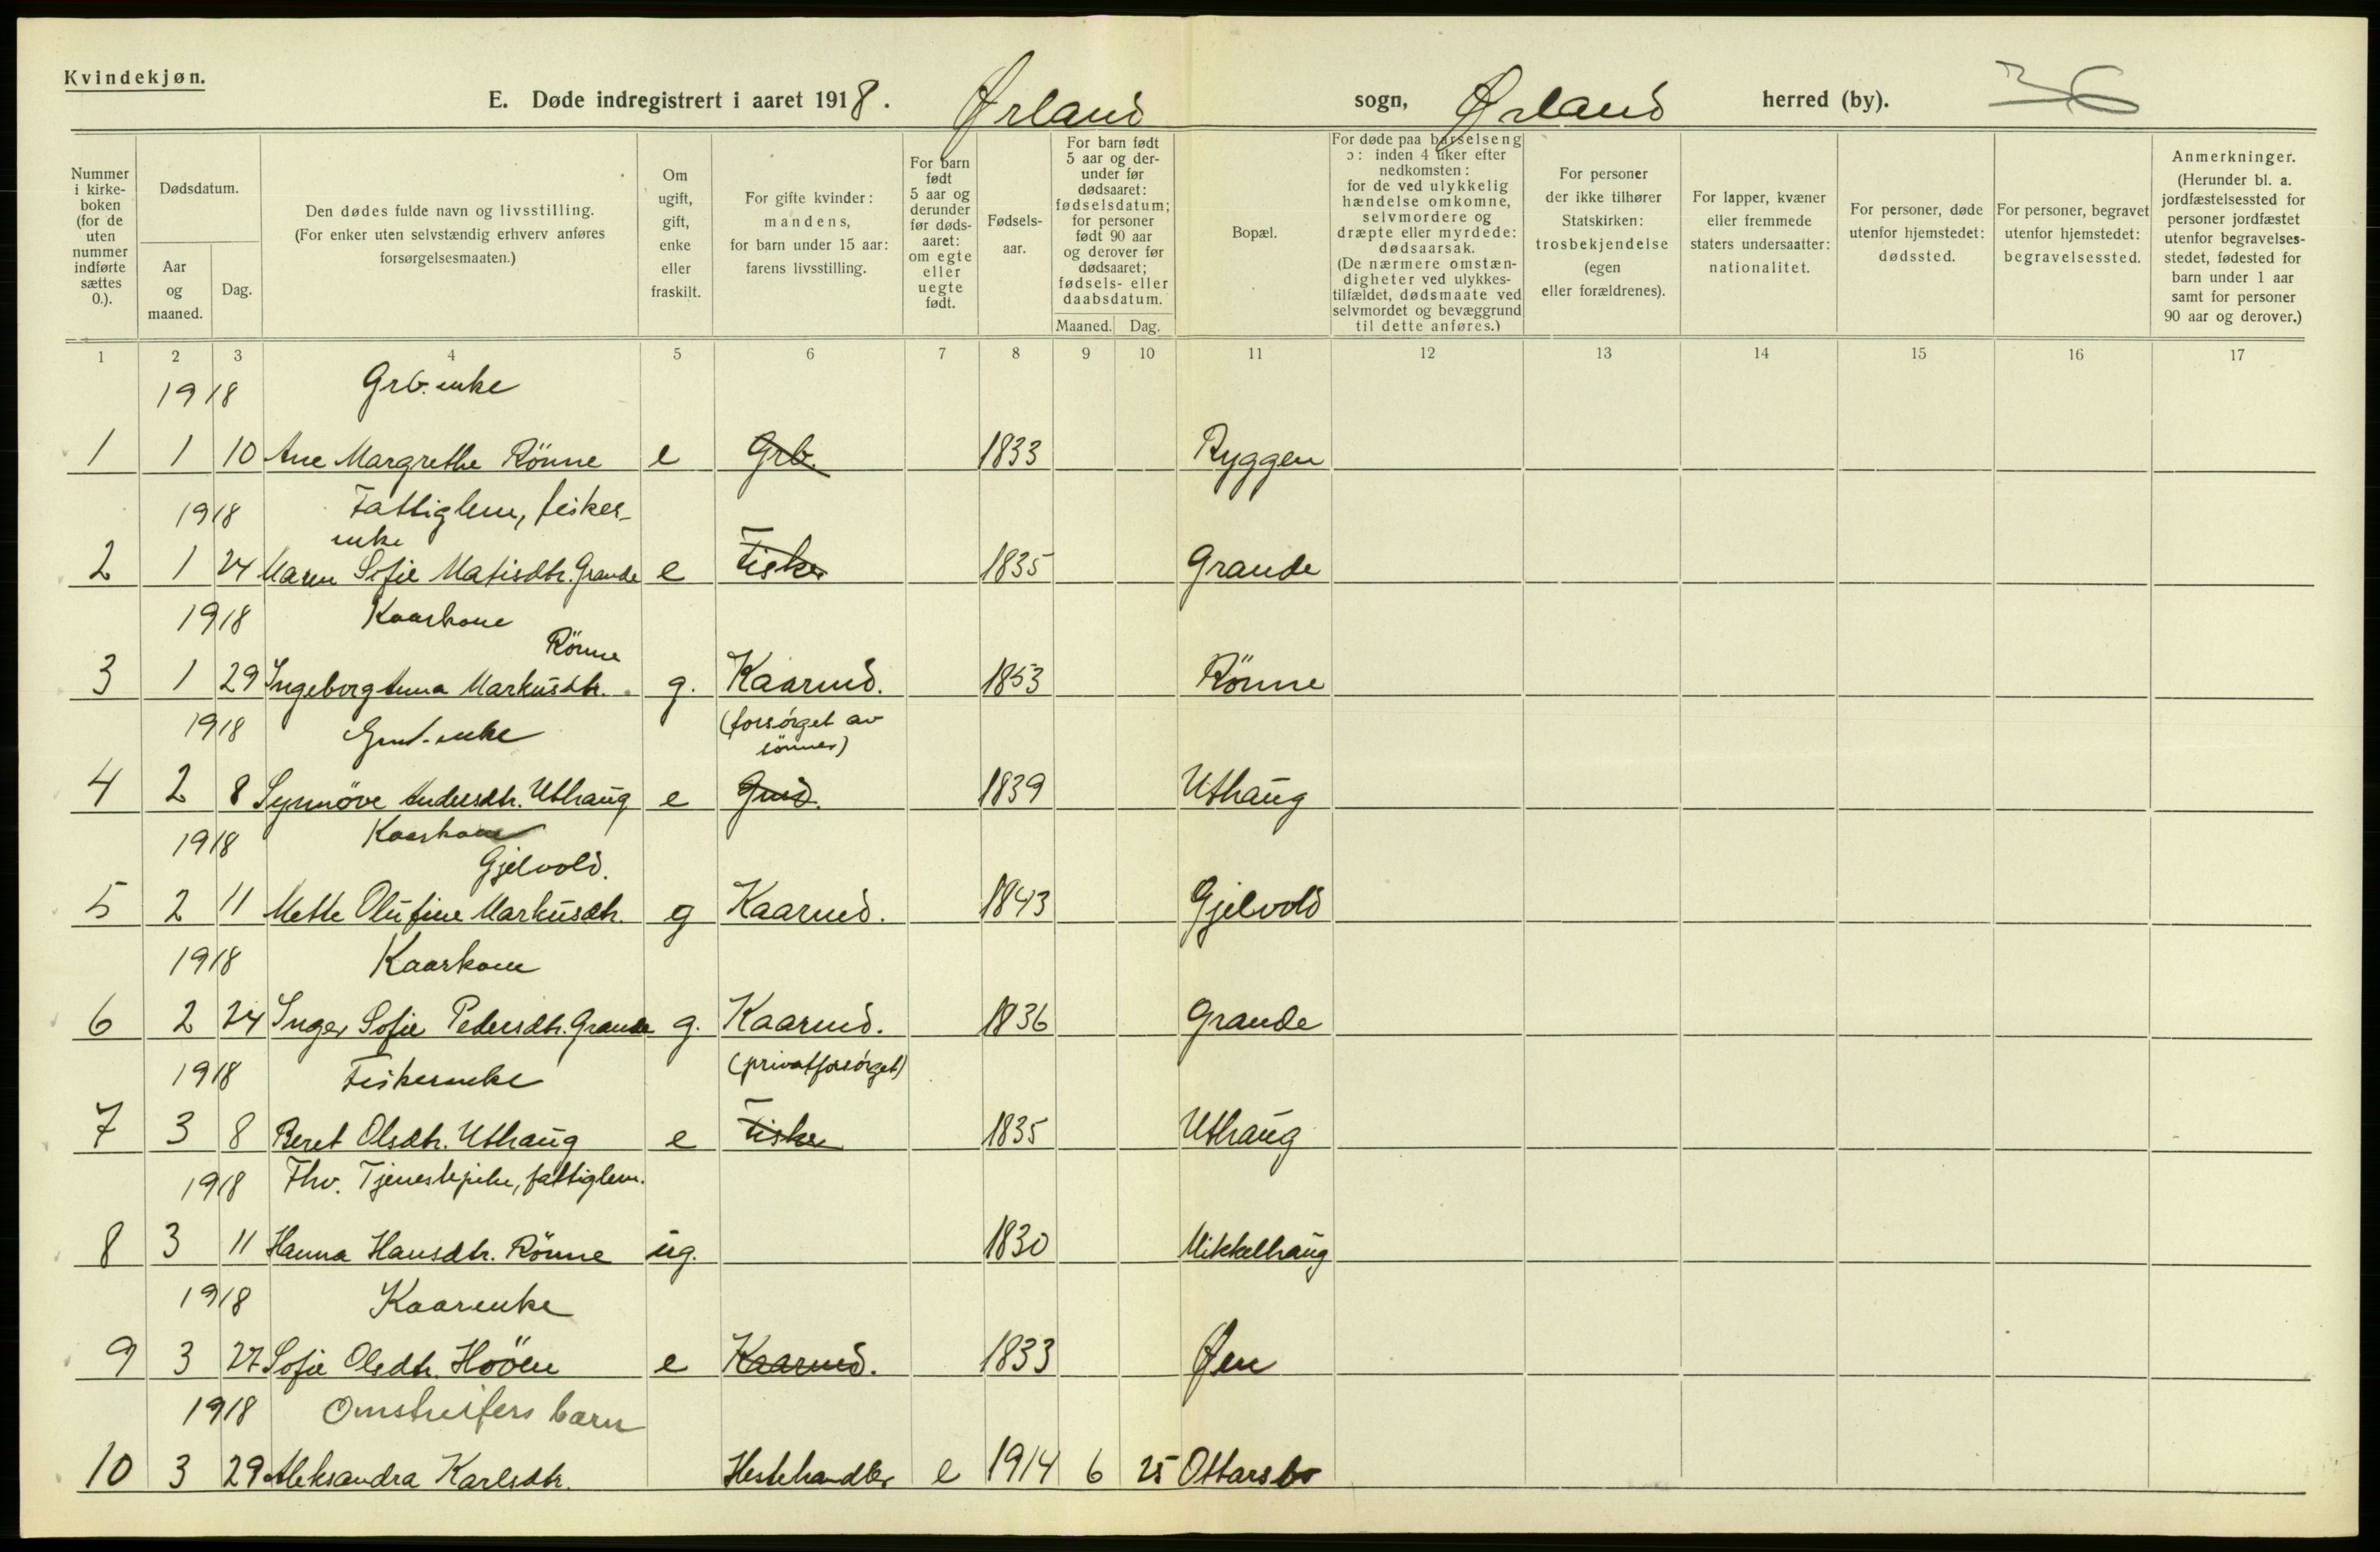 Kvindekjøn.
E. Døde indregistrert i aaret 1918. Ørland sogn, Ørland herred (by). 36
Nummer i kirke- boken (for de uten nummer indførte sættes 0.).
Dødsdatum.
Aar og maaned.
Dag.
Den dødes fulde navn og livsstilling.
(For enker uten selvstændig erhverv anføres
forsørgelsesmaaten.)
Om ugift, gift, enke eller fraskilt.
For gifte kvinder: mandens, for barn under 15 aar: farens livsstilling.
For barn født 5 aar og derunder før døds- aaret: om egte eller uegte født.
Fødsels- aar.
For barn født 5 aar og der- under før dødsaaret: fødselsdatum; for personer født 90 aar og derover før dødsaaret; fødsels- eller daabsdatum.
Maaned. Dag.
Bopæl.
For døde paa barselseng ɔ: inden 4 uker efter nedkomsten: for de ved ulykkelig hændelse omkomne, selvmordere og dræpte eller myrdede: dødsaarsak. (De nærmere omstæn- digheter ved ulykkes- tilfældet, dødsmaate ved selvmordet og bevæggrund til dette anføres.)
For personer der ikke tilhører Statskirken: trosbekjendelse (egen eller forældrenes).
For lapper, kvæner eller fremmede staters undersaatter: nationalitet.
For personer, døde utenfor hjemstedet: dødssted.
For personer, begravet utenfor hjemstedet: begravelsessted.
Anmerkninger. (Herunder bl. a. jordfæstelsessted for personer jordfæstet utenfor begravelses- stedet, fødested for barn under 1 aar samt for personer 90 aar og derover.)
1 2 3 4 5 6 7 8 9 10 11 12 13 14 15 16 17
1918 Grb. enke
1 1 10 Ane Margrethe Rönne e Grb. 1833 Ryggen
1918 Fattiglem, fisker-
enke
2 1 24 Maren Sofie Matisdtr. Grande e Fisker 1835 Grande
1918 Kaarkone
Rönne
3 1 29 Ingeborg Anna Markusdtr. g. Kaarmd. 1853 Rönne
1918 Gmd. enke (forsörget av
sönner)
4 2 8 Synnöve Andersdtr. Uthaug e Gmd. 1839 Uthaug
1918 Kaarkone
Gjelvold.
5 2 11 Mette Olufine Markusdtr. g Kaarmd. 1843 Gjelvold
1918 Kaarkone
6 2 24 Inger Sofie Pedersdtr. Grande g. Kaarmd. 1836 Grande
1918 Fiskerenke (privatforsörget)
7 3 8 Beret Olsdtr. Uthaug e Fisker 1835 Uthaug
1918 Fhv. Tjenestepike, fattiglem.
8 3 11 Hanna Hansdtr. Rönne ug. 1830 Mikkelhaug
1918 Kaarenke
9 3 27 Sofie Olsdtr. Hovöen e Kaarmd. 1833 Øen
1918 Omstreifers barn
10 3 29 Aleksandra Karlsdtr. Hestehandler e 1914 6 25 Ottarsbo